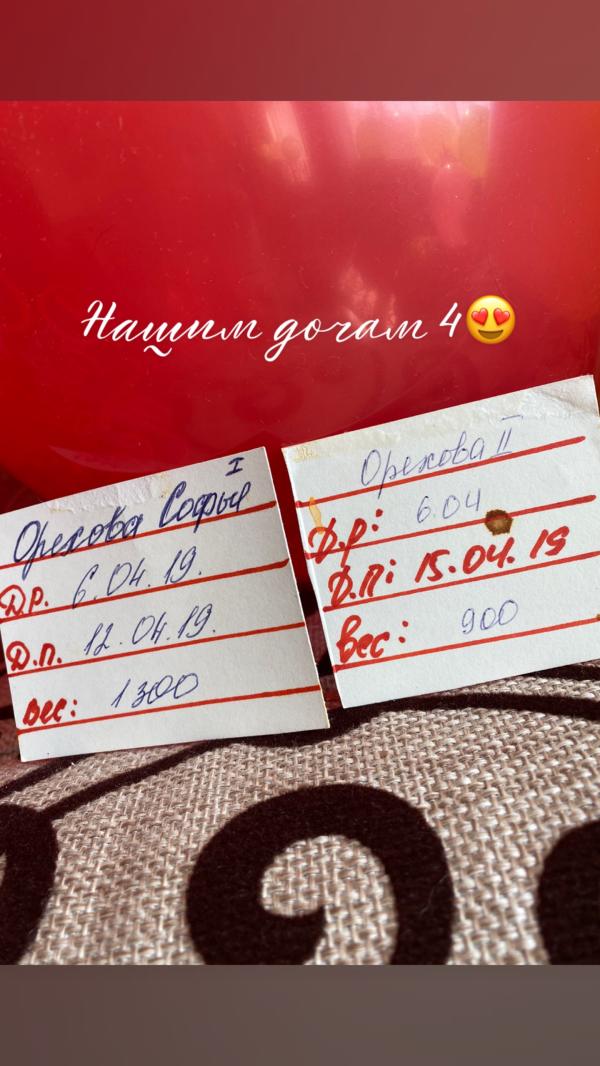 Нашим дочам 4😍
I
Орехова Софья
Д.Р. 6.04.19.
Д.п. 12.04.19.
вес: 1300
Орехова II
Д.р: 6.04
Д.П: 15.04.19
Вес: 900